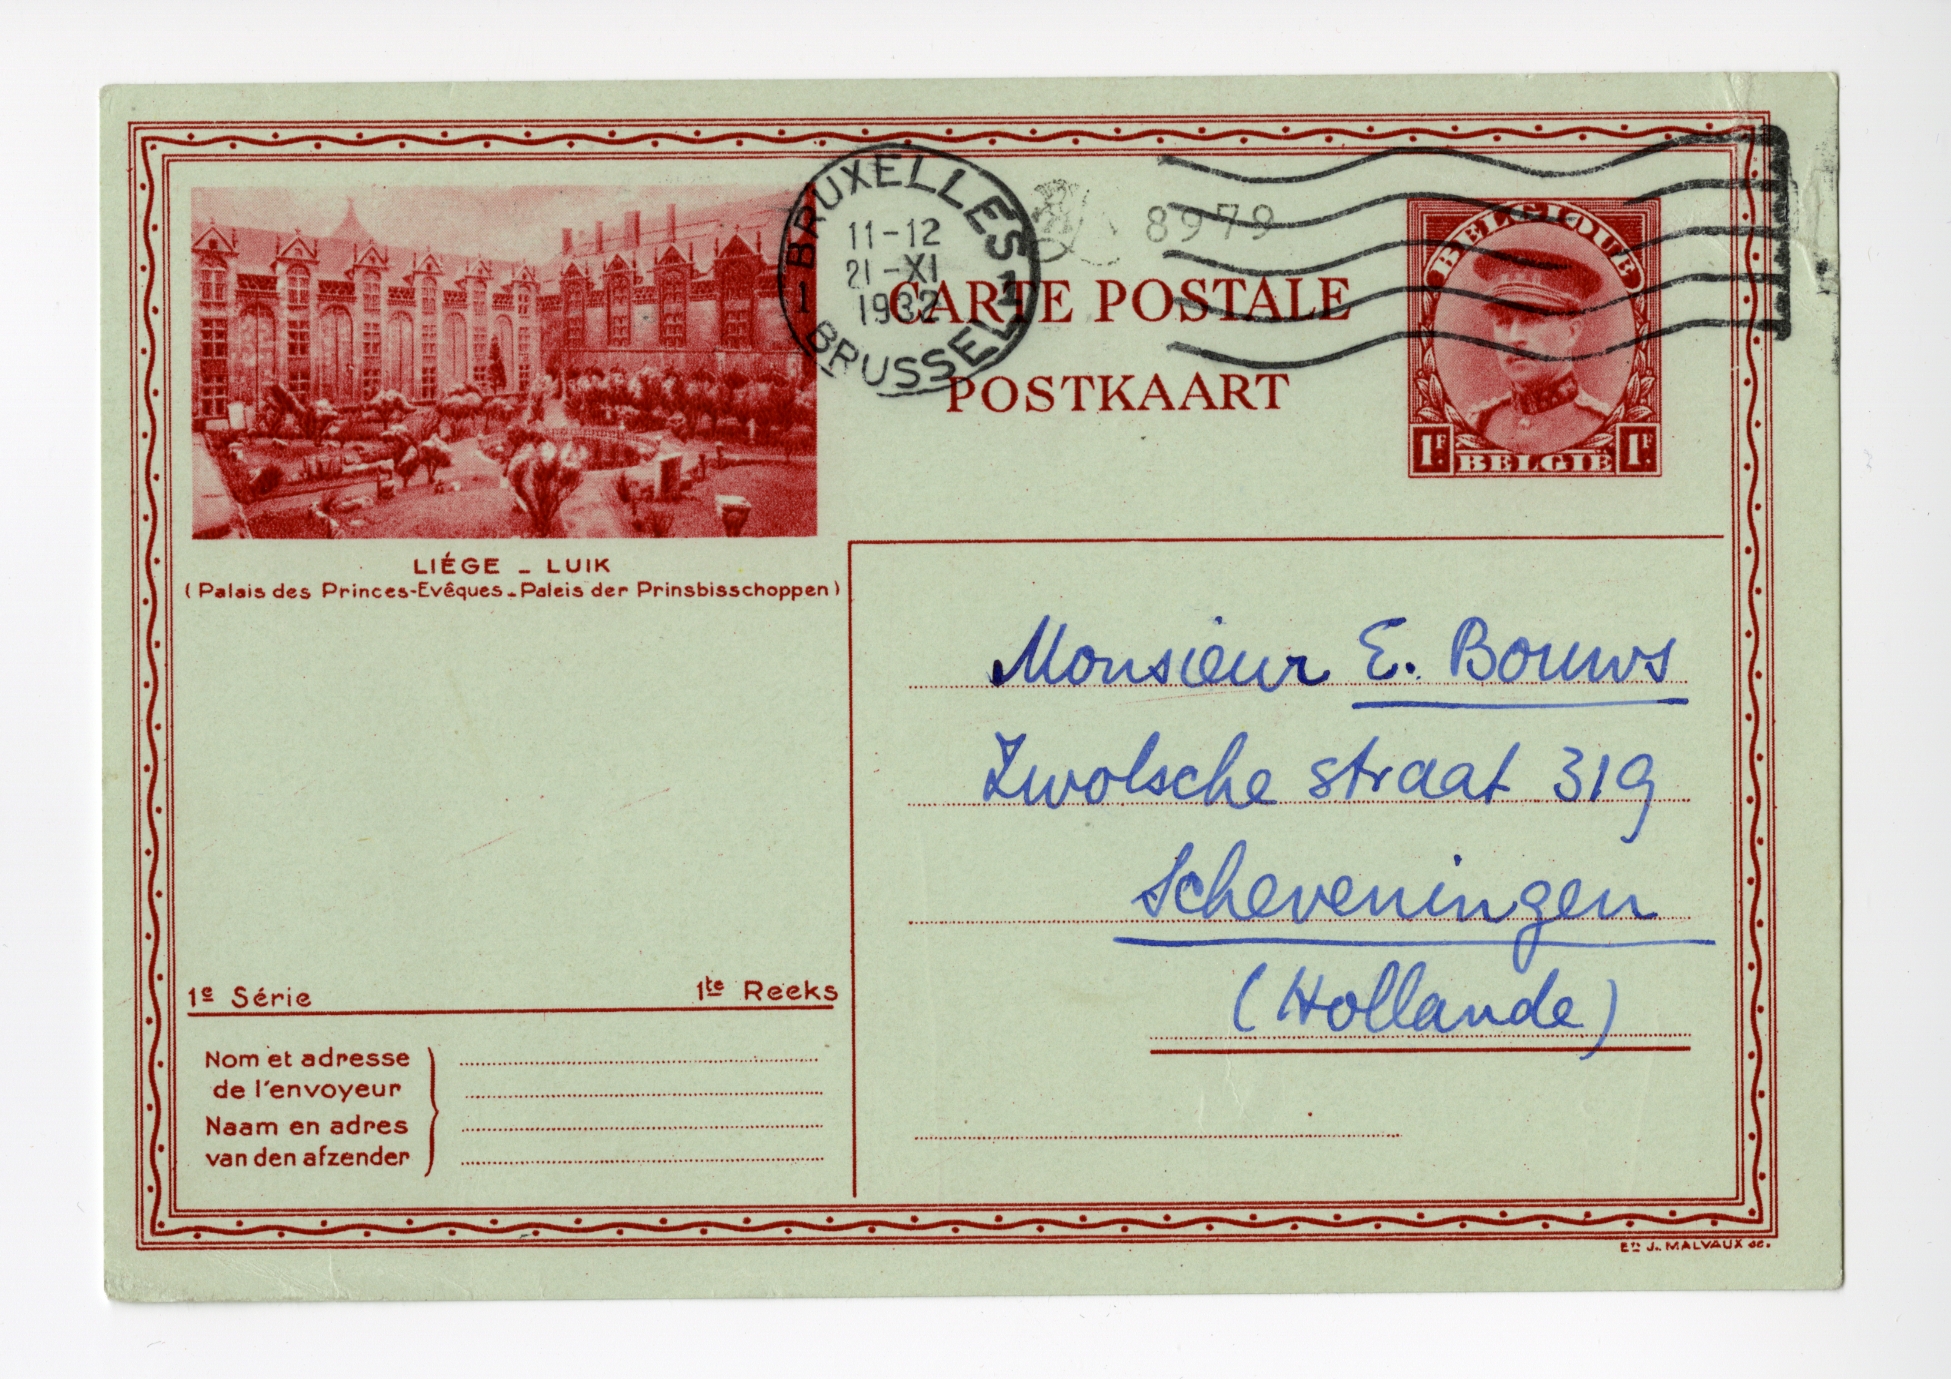 BRUXELLES
1 1
11-12
21-XI
1932
BRUSSEL
8979
CARTE POSTALE
POSTKAART
BELGIQUE
1F 1F
BELGIË
LIÉGE - LUIK
(Palais des Princes-Evêques - Paleis der Prinsbisschoppen)
Monsieur E. Bouws
Zwolsche straat 319
Scheveningen
(Hollande)
1e Série 1te Reeks
Nom et adresse
de l'envoyeur
Naam en adres
van den afzender
Ets J. MALVAUX sc.